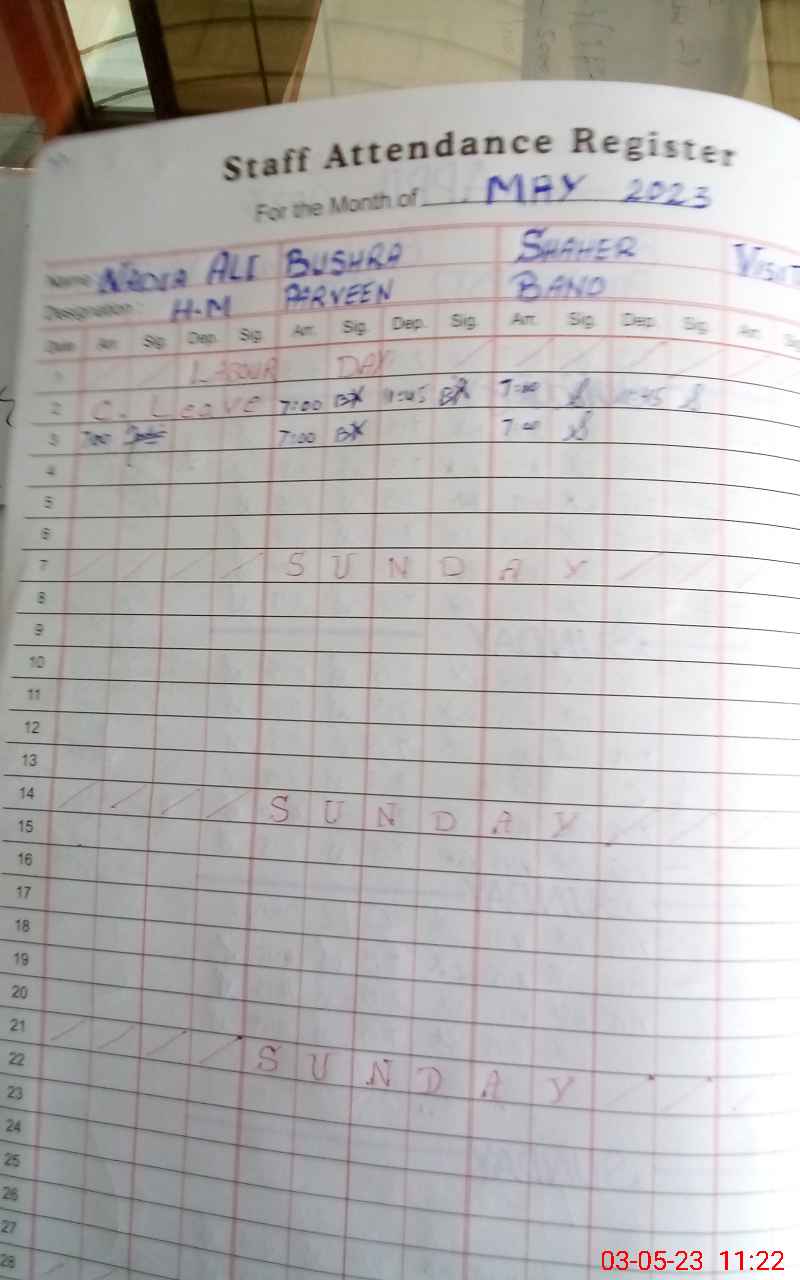 Staff Attendance Register
For the Month of MAY 2023
Name: NADIA ALI BUSHRA SHAHER VISIT
Designation: H-M PARVEEN BANO
Date Arr. Sig. Dep. Sig. Arr. Sig. Dep. Sig. Arr. Sig. Dep. Sig. Arr. Sig
1 LABOUR DAY
2 C. Leave 7:00 BX 11:45 BX 7:00 11:45
3 7:00 7:00 BX 7:00
4
5
6
7 SUNDAY
8
9
10
11
12
13
14 SUNDAY
15
16
17
18
19
20
21 SUNDAY
22
23
24
25
26
27
28
03-05-23 11:22